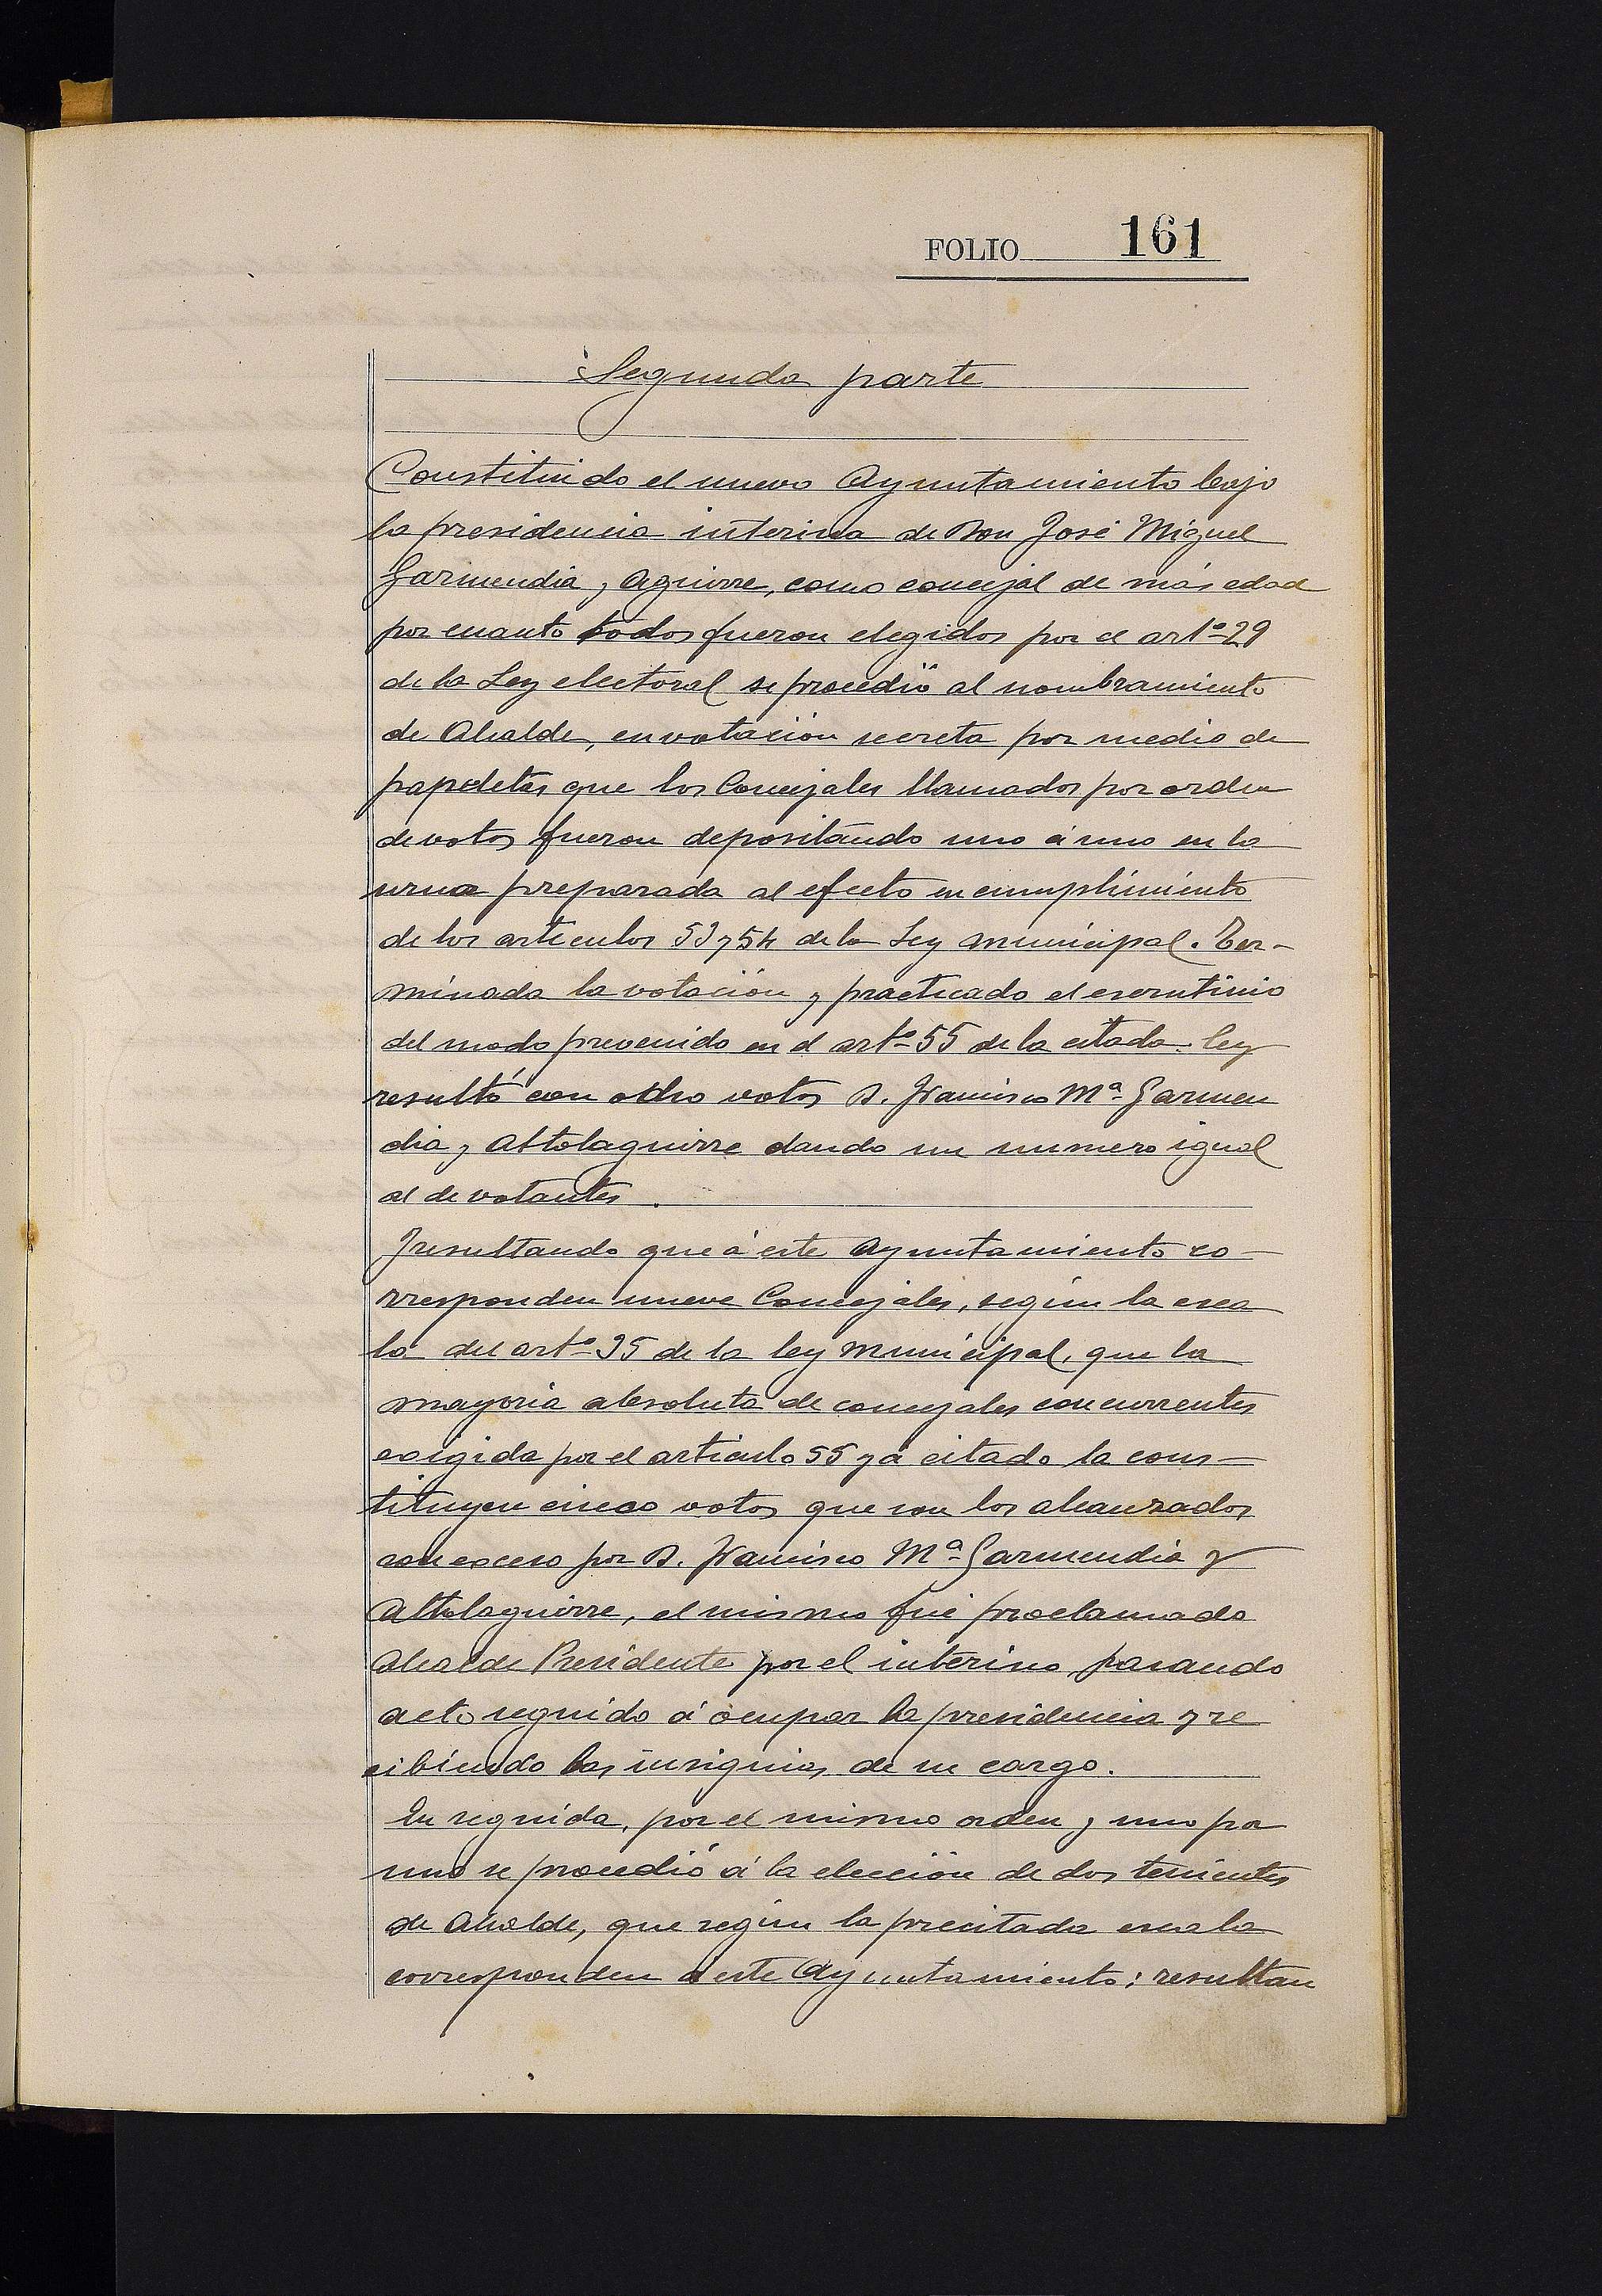 FOLIO 161
Segunda parte
Constituido el nuevo Ayuntamiento bajo
la presidencia interina de Don José Miguel
Garmendia y Aguirre, como concejal de más edad
por cuanto todos fueron elegidos por el artº 29
de la Ley electoral se procedió al nombramiento
de Alcalde, en votación secreta por medio de
papeletas que los Concejales llamados por orden
de votos fueron depositándo uno á uno en la
urna preparada al efecto en cumplimiento
de los articulos 53 y 54 de la Ley Municipal. Ter-
minada la votación y practicado el escrutinio
del modo prevenido en el artº 55 de la citada ley
resultó con ocho votos D. Francisco Mª Garmen
dia y Altolaguirre dando un numero igual
al de votantes.
Y resultando que á este Ayuntamiento co-
rresponden nueve Concejales, según la esca
la del artº 35 de la ley Municipal, que la
mayoria absoluta de concejales concurrentes
exigida por el articulo 55 yá citado la cons-
tituyen cinco votos que son los alcanzados
con exceso por D. Francisco Mª Garmendia y
Altolaguirre, el mismo fué proclamado
Alcalde Presidente por el interino pasando
acto seguido á ocupar la presidencia y re
cibiendo las insignias de su cargo.
En seguida, por el mismo orden y uno por
uno se procedió á la elección de dos tenientes
de Alcalde, que según la precitada escala
corresponden á este Ayuntamiento; resultan